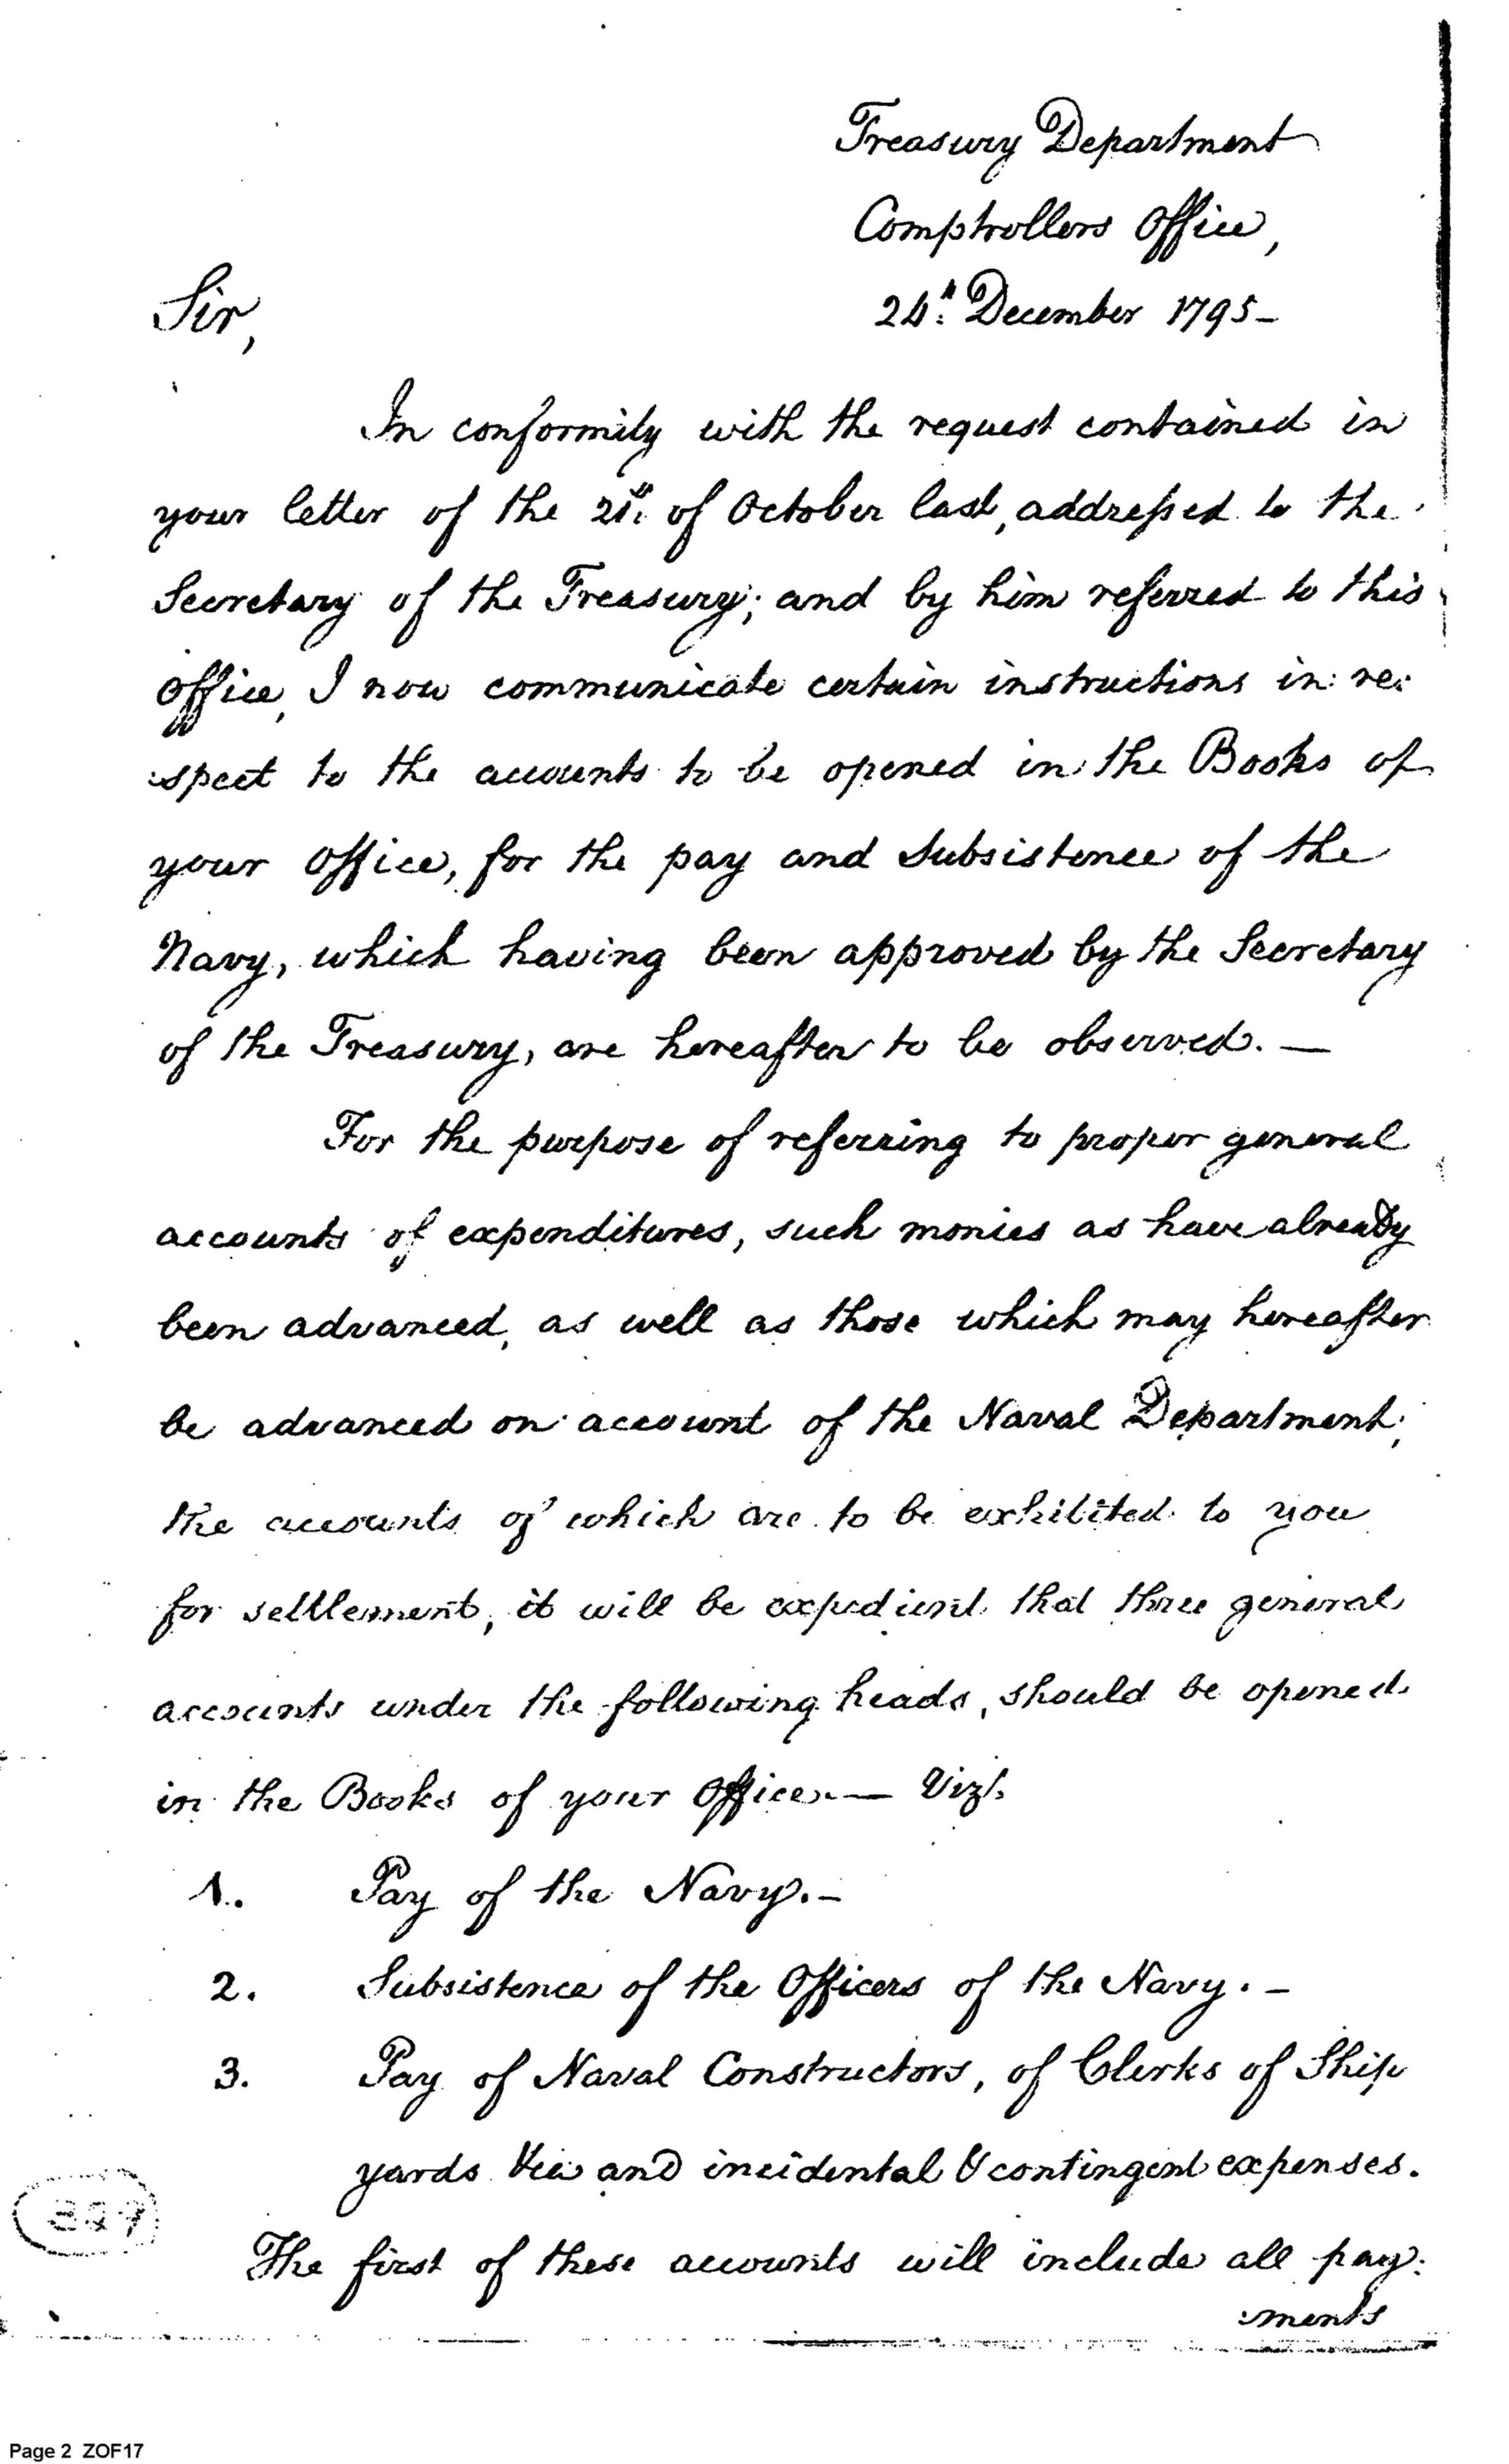 Treasury Department
Comptrollers Office,
24th December 1795-
Sir,
In conformity with the request contained in
your letter of the 21st. of October last, addressed to the
Secretary of the Treasury; and by him referred to this
office, I now communicate certain instructions in re:
:spect to the accounts to be opened in the Books of
your Office, for the pay and Subsistence of the
Navy, which having been approved by the Secretary
of the Treasury, are hereafter to be observed. —
For the purpose of referring to proper general
accounts of expenditures, such monies as have already
been advanced, as well as those which may hereafter
be advanced on account of the Naval Department;
the accounts of which are to be exhibited to you
for settlement, it will be expedient that three general
accounts under the following heads, should be opened
in the Books of your Office.— Vizt.
1. Pay of the Navy.-
2. Subsistence of the Officers of the Navy. -
3. Pay of Naval Constructors, of Clerks of Ship
yards and incidental & contingent expenses.
The first of these accounts will include all pay:
:ments
Page 2 ZOF17